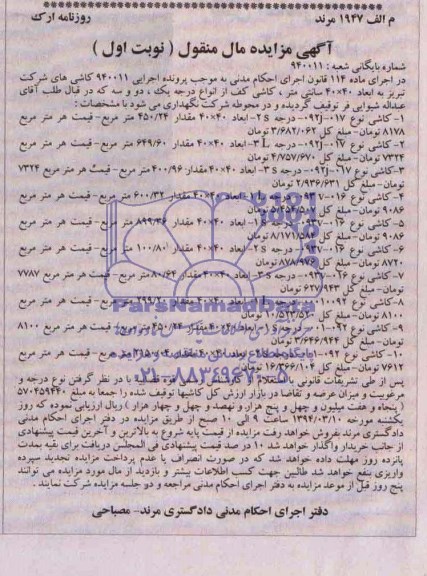 م الف ۱۹۴۷ مرند روزنامه ارک
آگهی مزایده مال منقول ( نوبت اول )
شماره بایگانی شعبه : ۹۴۰۰۱۱
در اجرای ماده ۱۱۴ قانون اجرای احکام مدنی به موجب پرونده اجرایی ۹۴۰۰۱۱ کاشی های شرکت
تبریز به ابعاد ۴۰×۴۰ سانتی متر ، کاشی کف از انواع درجه یک ، دو و سه که در قبال طلب آقای
عبداله شیوایی فر توقیف گردیده و در محوطه شرکت نگهداری می شود با مشخصات :
۱- کاشی نوع ۰۱۷-۰۹۲j- درجه ۲s- ابعاد ۴۰×۴۰ مقدار ۴۵۰/۲۴ متر مربع- قیمت هر متر مربع
۸۱۷۸ تومان- مبلغ کل ۳/۶۸۲/۰۶۲ تومان
۲- کاشی نوع ۰۱۷-۰۹۲j- درجه ۳L- ابعاد ۴۰×۴۰ مقدار ۶۴۹/۶۰ متر مربع- قیمت هر متر مربع
۷۳۲۴ تومان- مبلغ کل ۴/۷۵۷/۶۷۰ تومان
۳-کاشی نوع ۰۱۷-۰۹۲j- درجه ۳s- ابعاد ۴۰×۴۰ مقدار ۴۰۰/۹۶ متر مربع- قیمت هر متر مربع ۷۳۲۴
تومان- مبلغ کل ۲/۹۳۶/۶۳۱ تومان
۴- کاشی نوع ۰۱۶-۰۹۳۷- درجه ابعاد ۴۰×۴۰ مقدار ۶۰۰/۳۲ متر مربع- قیمت هر متر مربع
۹۰۸۶ تومان- مبلغ کل ۵/۴۵۴/۵۰۷ تومان
۵- کاشی نوع ۰۹۳۷- درجه ۱s- ابعاد ۴۰×۴۰ مقدار ۸۹۹/۳۶ متر مربع- قیمت هر متر مربع
۹۰۸۶ تومان- مبلغ کل ۸/۱۷۱/۵۸۴ تومان
۶- کاشی نوع ۰۹۳۷- درجه ۲s- ابعاد ۴۰×۴۰ مقدار ۱۰۰/۸۰ متر مربع- قیمت هر متر مربع
۸۷۲۰ تومان- مبلغ کل ۸۷۸/۹۷۶ تومان
۷- کاشی نوع ۰۲۶-۰۹۳۷- درجه ۳s- ابعاد ۴۰×۴۰ مقدار ۸۰/۶۴ متر مربع- قیمت هر متر مربع ۷۷۸۷
تومان- مبلغ کل ۶۲۷/۹۴۳ تومان
۸-کاشی نوع ابعاد ۴۰×۴۰ مقدار متر مربع- قیمت هر متر مربع
۸۱۰۰ تومان- مبلغ کل ۱۰/۵۲۳/۵۲۰ تومان
۹- کاشی نوع ابعاد ۴۰×۴۰ مقدار ۴۵۰/۲۴ متر مربع- قیمت هر متر مربع ۸۱۰۰
تومان- مبلغ کل ۳/۶۴۶/۹۴۴ تومان
۱۰- کاشی نوع ابعاد مقدار متر مربع- قیمت هر متر مربع
۷۶۱۲ تومان- مبلغ کل ۱۶/۳۶۶/۱۰۴ تومان
پس از طی تشریفات قانونی با استعلام از کارشناس رسمی قوه قضائیه با در نظر گرفتن نوع درجه و
مرغوبیت و میزان عرضه و تقاضا در بازار ارزش کل کاشیها توقیف شده را جمعا به مبلغ ۵۷۰۴۵۹۴۴۰
( پنجاه و هفت میلیون و چهل و پنج هزار و نهصد و چهل و چهار هزار ) ریال ارزیابی نموده که روز
یکشنبه مورخه ۱۳۹۴/۰۳/۱۰ ساعت ۹ الی ۱۰ صبح از طریق مزایده در دفتر اجرای احکام مدنی
دادگستری مرند بفروش خواهد رفت مزایده از قیمت پایه شروع به بالاترین و آخرین قیمت پیشنهادی
از جانب خریدار واگذار خواهد شد ۱۰ در صد قیمت پیشنهادی فی المجلس دریافت برای بقیه بمدت
پانزده روز مهلت داده خواهد شد که در صورت انصراف یا عدم پرداخت مزایده تجدید سپرده
واریزی بنفع خواهد شد طالبین جهت کسب اطلاعات بیشتر و بازدید از مال مورد مزایده می توانند
پنج روز قبل از موعد مزایده به دفتر اجرای احکام مدنی مراجعه و در جلسه مزایده شرکت نمایند .
دفتر اجرای احکام مدنی دادگستری مرند- مصباحی
ParsNamadData
۰۲۱-۸۸۳۴۹۶۷۰-۵